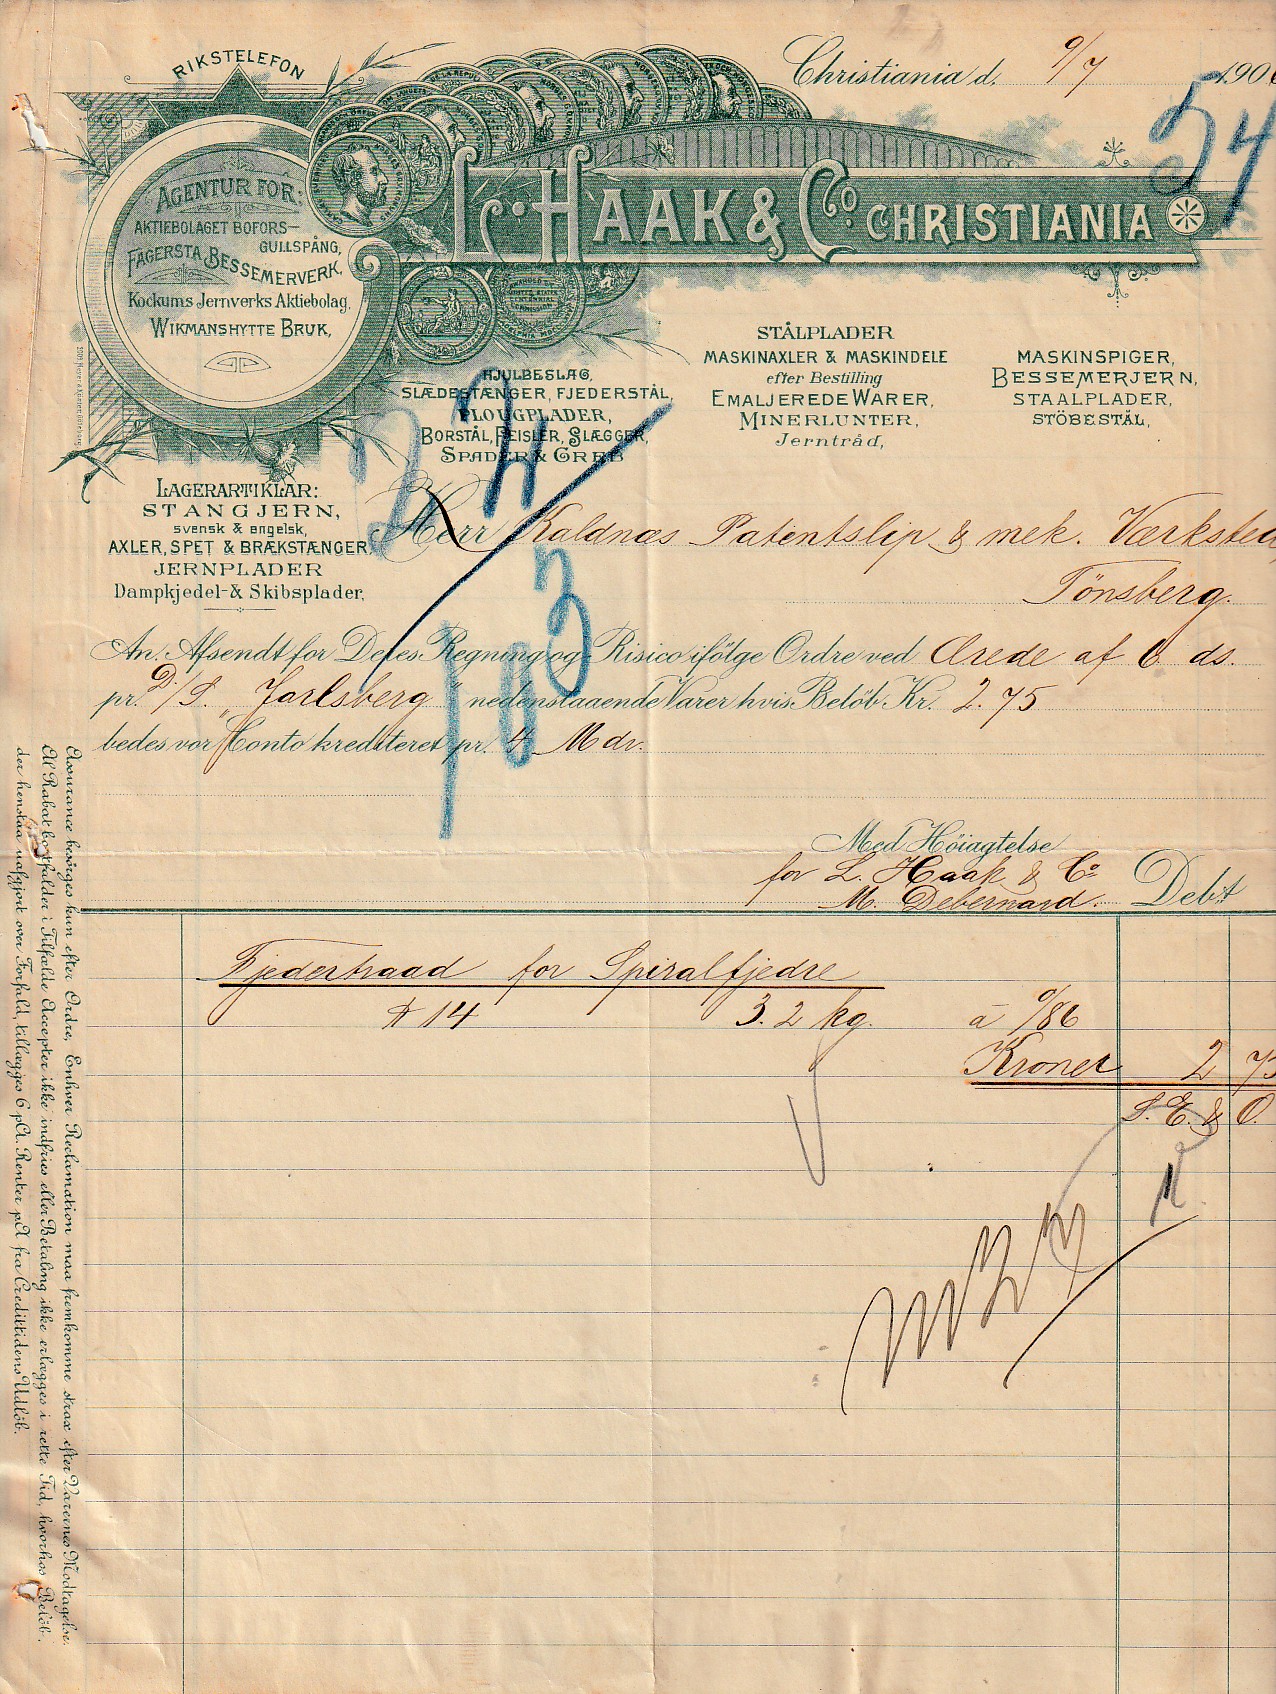 RIKSTELEFON
Christiania d. 9/7 190
54
AGENTUR FOR:
AKTIEBOLAGET BOFORS-
GULLSPÅNG,
FAGERSTA BESSEMERVERK,
Kockums Jernverks Aktiebolag,
WIKMANSHYTTE BRUK,
L. HAAK & Co. CHRISTIANIA
HJULBESLAG,
SLÆDESTÆNGER, FJEDERSTÅL,
PLOUGPLADER,
BORSTÅL, FEISLER, SLÆGGER,
SPADER & GREB
STÅLPLADER
MASKINAXLER & MASKINDELE
efter Bestilling
EMALJEREDE WARER,
MINERLUNTER,
Jerntråd,
MASKINSPIGER,
BESSEMERJERN,
STAALPLADER,
STÖBESTÅL,
LAGERARTIKLAR:
STANGJERN,
svensk & engelsk,
AXLER, SPET & BRÆKSTÆNGER,
JERNPLADER
Dampkjedel- & Skibsplader,
Herr Kaldnæs Patentslip & mek. Værksted
Tönsberg.
103
An Afsendt for Deres Regning og Risico ifölge Ordre ved Ærede af 6 ds.
pr. D/S. „Jarlsberg" nedenstaaende Varer hvis Belöb Kr. 2.75
bedes vor Conto krediteret pr. 4 Mdr.
Med Höiagtelse
for L. Haak & Co
M. Debernard.
Debt
Fjedertraad for Spiralfjedre
# 14 3.2 kg. à 0/86
Kroner 2 75
S. E. & O.
Assurance besörges kun efter Ordre, Enhver Reclamation maa fremkomme strax efter Varernes Modtagelse.
Al Rabat bortfalder i Tilfælde Accepter ikke indfries eller Betaling ikke erlægges i rette Tid, hvorhos Belöb,
der henstaa uafgjort over Forfald, tillægges 6 pCt. Renter pA fra Credittidens Udlöb.